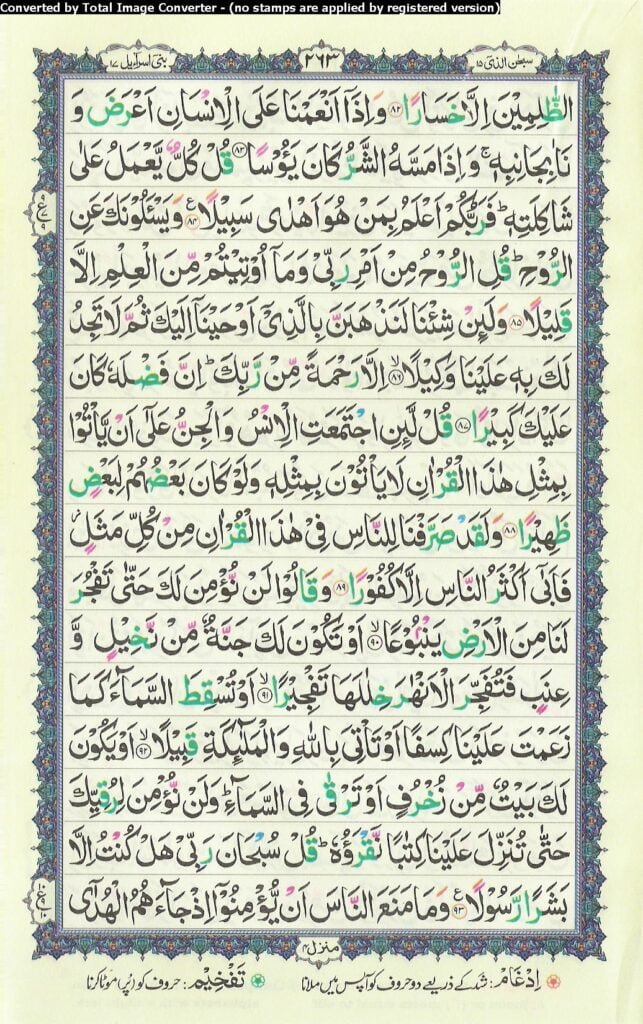 Converted by Total Image Converter - (no stamps are applied by registered version)
سبحٰن الذی ۱۵
۲۶۳
بنی اسرآءیل ۱۷
الظّٰلِمِيْنَ اِلَّا خَسَارًا ﴿۸۲﴾ وَاِذَاۤ اَنْعَمْنَا عَلَى الْاِنْسَانِ اَعْرَضَ وَ
نَاٰ بِجَانِبِهٖ ۚ وَاِذَا مَسَّهُ الشَّرُّ كَانَ يَـُٔوْسًا ﴿۸۳﴾ قُلْ كُلٌّ يَّعْمَلُ عَلٰى
شَاكِلَتِهٖ ؕ فَرَبُّكُمْ اَعْلَمُ بِمَنْ هُوَ اَهْدٰى سَبِيْلًا ﴿۸۴﴾ وَيَسْـَٔلُوْنَكَ عَنِ
الرُّوْحِ ؕ قُلِ الرُّوْحُ مِنْ اَمْرِ رَبِّيْ وَمَاۤ اُوْتِيْتُمْ مِّنَ الْعِلْمِ اِلَّا
قَلِيْلًا ﴿۸۵﴾ وَلَئِنْ شِئْنَا لَنَذْهَبَنَّ بِالَّذِيْۤ اَوْحَيْنَاۤ اِلَيْكَ ثُمَّ لَا تَجِدُ
لَكَ بِهٖ عَلَيْنَا وَكِيْلًا ﴿۸۶﴾ ۙ اِلَّا رَحْمَةً مِّنْ رَّبِّكَ ؕ اِنَّ فَضْلَهٗ كَانَ
عَلَيْكَ كَبِيْرًا ﴿۸۷﴾ قُلْ لَّئِنِ اجْتَمَعَتِ الْاِنْسُ وَالْجِنُّ عَلٰۤى اَنْ يَّاْتُوْا
بِمِثْلِ هٰذَا الْقُرْاٰنِ لَا يَاْتُوْنَ بِمِثْلِهٖ وَلَوْ كَانَ بَعْضُهُمْ لِبَعْضٍ
ظَهِيْرًا ﴿۸۸﴾ وَلَقَدْ صَرَّفْنَا لِلنَّاسِ فِيْ هٰذَا الْقُرْاٰنِ مِنْ كُلِّ مَثَلٍ ۫
فَاَبٰٓى اَكْثَرُ النَّاسِ اِلَّا كُفُوْرًا ﴿۸۹﴾ وَقَالُوْا لَنْ نُّؤْمِنَ لَكَ حَتّٰى تَفْجُرَ
لَنَا مِنَ الْاَرْضِ يَنْۢبُوْعًا ﴿۹۰﴾ ۙ اَوْ تَكُوْنَ لَكَ جَنَّةٌ مِّنْ نَّخِيْلٍ وَّ
عِنَبٍ فَتُفَجِّرَ الْاَنْهٰرَ خِلٰلَهَا تَفْجِيْرًا ﴿۹۱﴾ ۙ اَوْ تُسْقِطَ السَّمَآءَ كَمَا
زَعَمْتَ عَلَيْنَا كِسَفًا اَوْ تَاْتِيَ بِاللّٰهِ وَالْمَلٰٓئِكَةِ قَبِيْلًا ﴿۹۲﴾ ۙ اَوْ يَكُوْنَ
لَكَ بَيْتٌ مِّنْ زُخْرُفٍ اَوْ تَرْقٰى فِي السَّمَآءِ ؕ وَلَنْ نُّؤْمِنَ لِرُقِيِّكَ
حَتّٰى تُنَزِّلَ عَلَيْنَا كِتٰبًا نَّقْرَؤُهٗ ؕ قُلْ سُبْحَانَ رَبِّيْ هَلْ كُنْتُ اِلَّا
بَشَرًا رَّسُوْلًا ﴿۹۳﴾ وَمَا مَنَعَ النَّاسَ اَنْ يُّؤْمِنُوْۤا اِذْ جَآءَهُمُ الْهُدٰۤى
منزل ۴
اِدْغَام: شد کے ذریعے دو حروف کو آپس میں ملانا تَفْخِيْم: حروف کو (پُر) موٹا کرنا